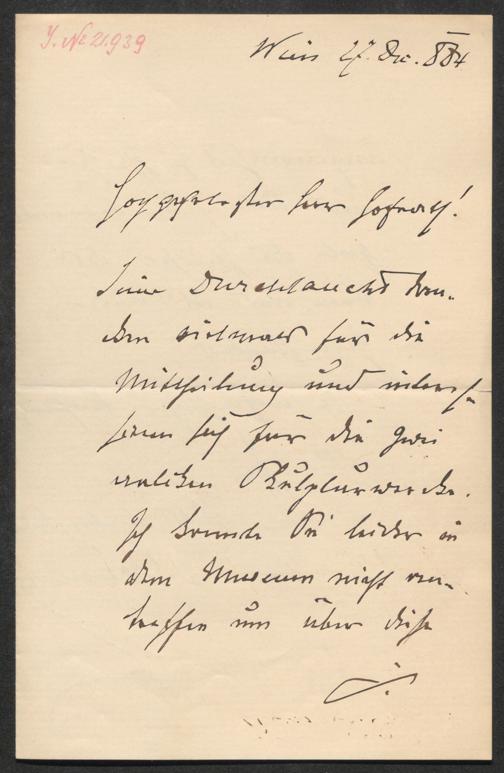 J. № 21.939
Wien 27. Dec. 884
Hochgeehrtester Herr Hofrath!
Seine Durchlaucht dan-
ken vielmals für die
Mittheilung und interes-
siren sich für die zwei
antiken Skulpturwerke.
Ich konnte Sie leider in
dem Museum nicht an-
treffen um über diese